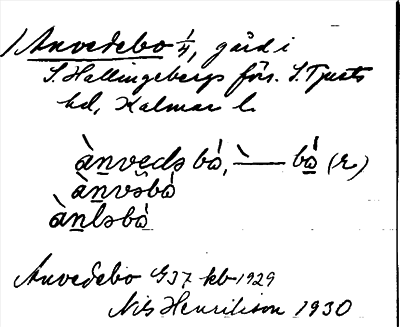 1/ Anvedebo 1/4, gård i
S. Hallingebergs förs. S. Tjusts
hd, Kalmar l.
ànvedə bó, `— bó (r)
ànvə̈bó
ànləbó
Anvedebo G37 kb 1929
Nils Henrikson 1930